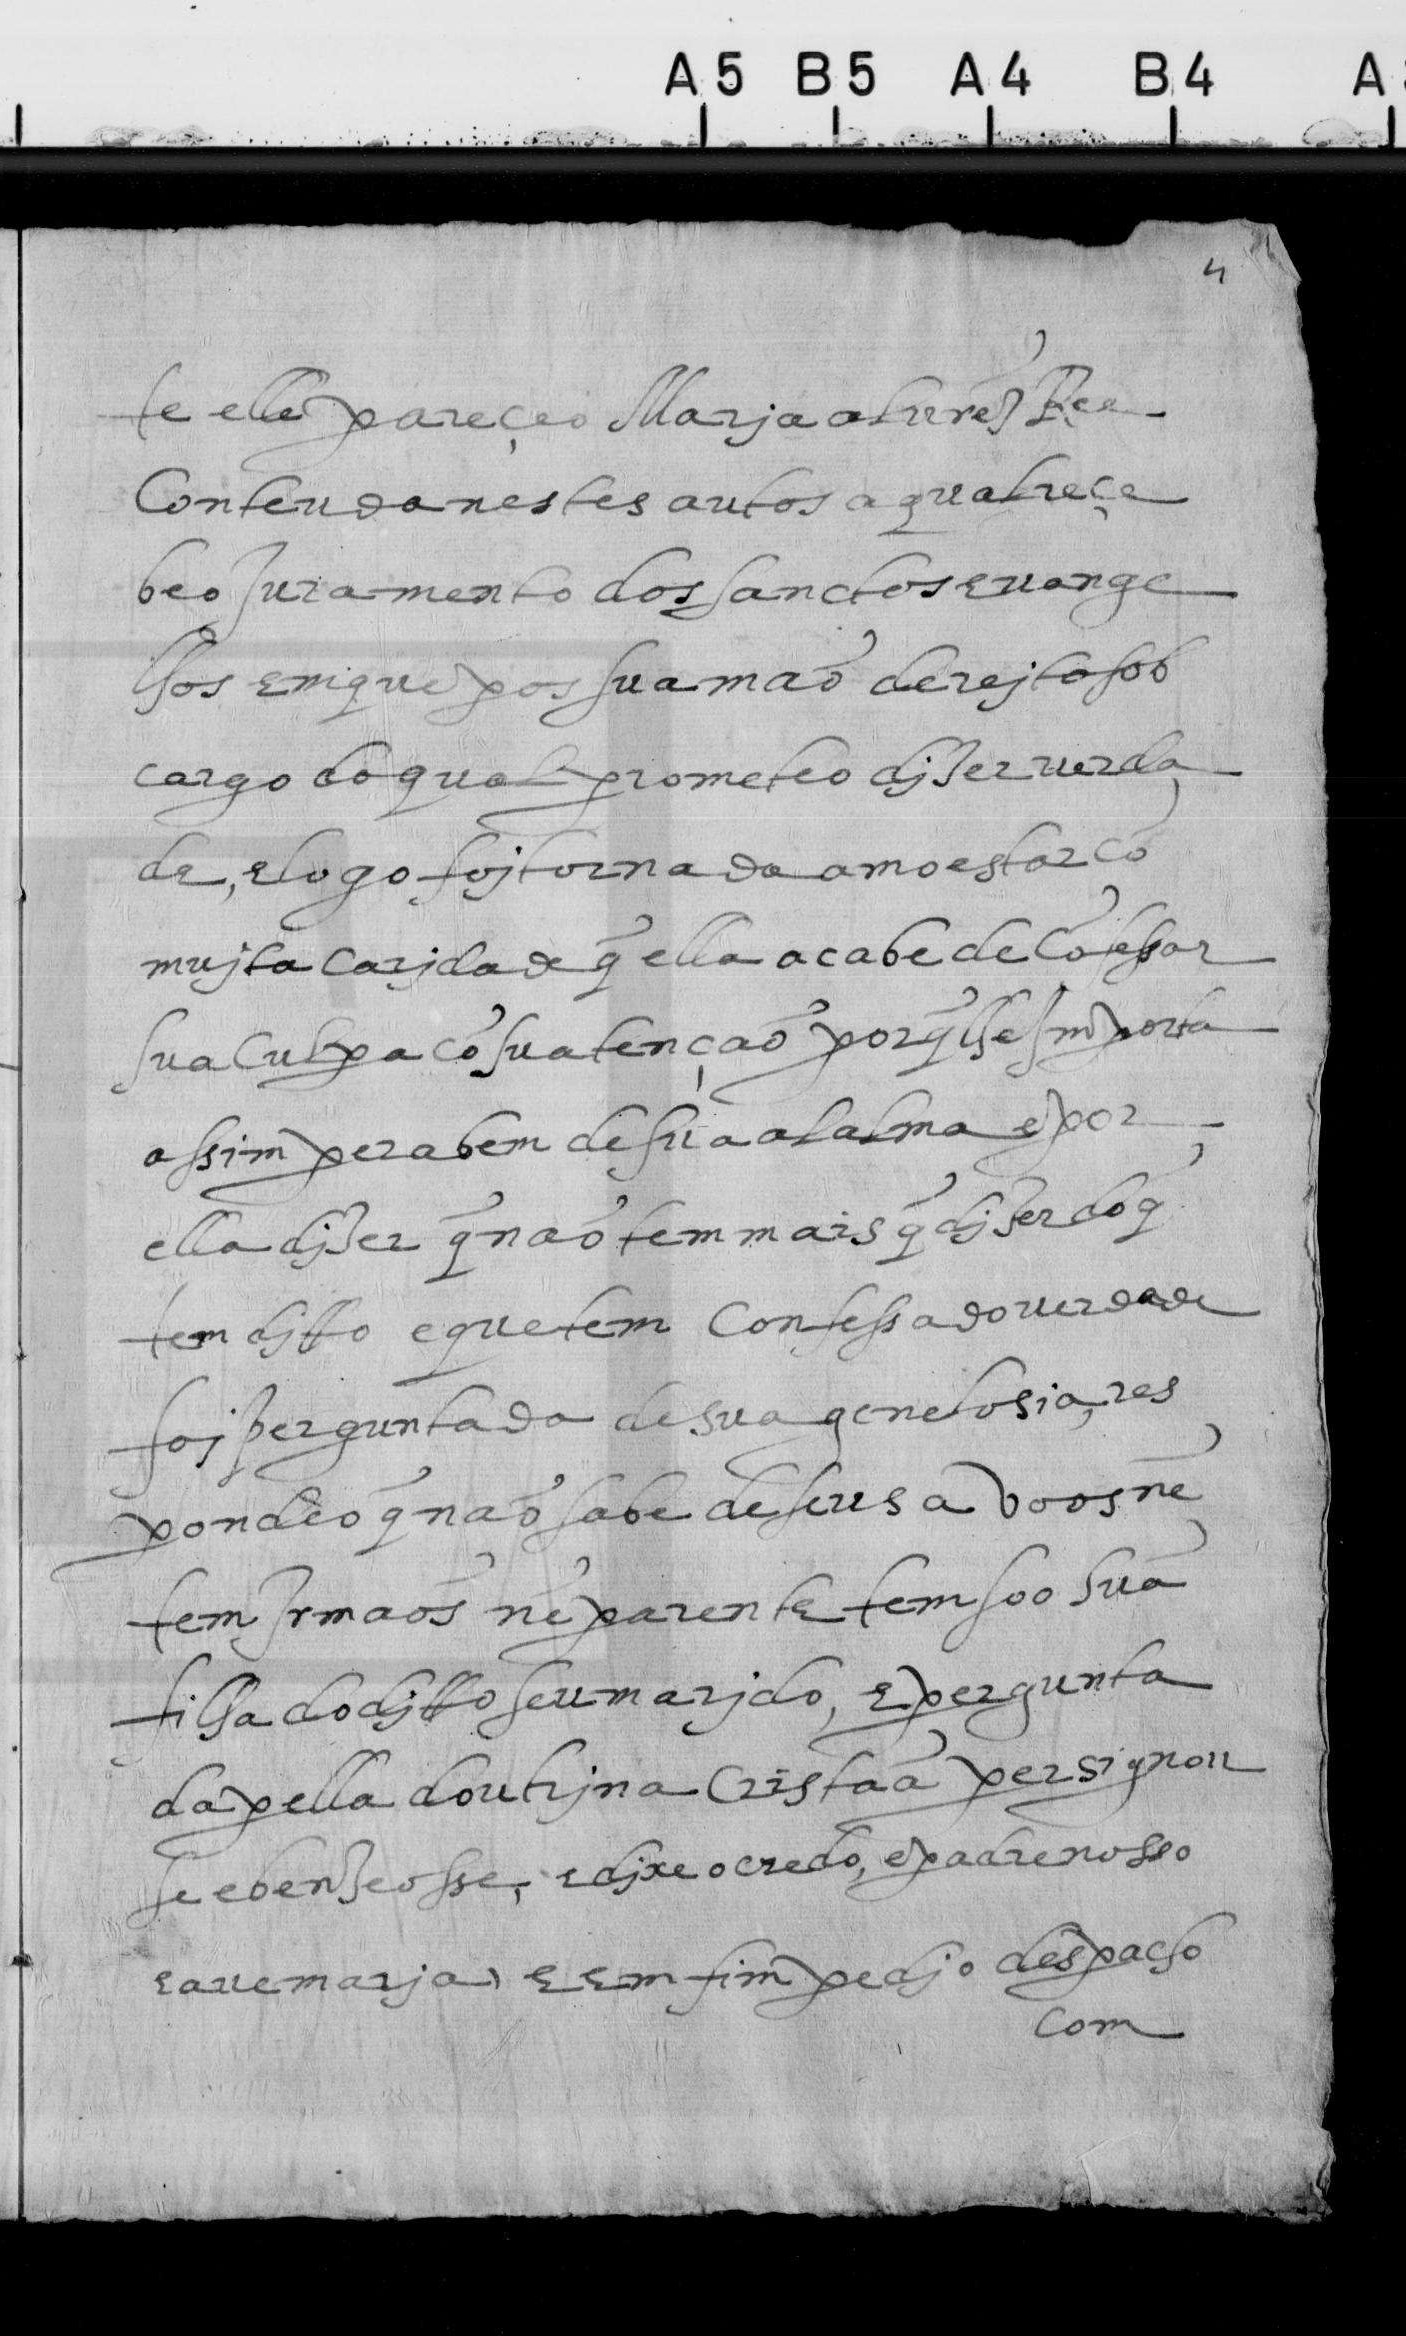 A5 B5 A4 B4 A
4
te elle pareçeo Marja alurēs Ree
Conteuda nestes autos a qual reçe
beo Juramento dos sanctos euange
lhos em que pos sua maõ derejta sob
cargo do qual prometeo djzer uerda
de, e logo foj tornada amoestar cõ
mujta carjdade q̃ ella acabe de Cõfessar
sua Culpa cõ sua tençaõ porq̃ lhe Importa
assim pera bem de sua alma e por
ella djzer q̃ naõ tem mais q̃ djzer do q̃
tem djtto e que tem Confessado uerdade
foj perguntada de sua genelosia, res
pondeo q̃ naõ sabe de seus avoos nẽ
tem Irmaõs nẽ parente tem soo sua
filha do djtto seu marjdo, e pergunta
da pella doutrjna Cristaã persignou
se e benzeosse, e djxe o credo, e padre nosso
e aue marja, e em fim pedjo despacho
com